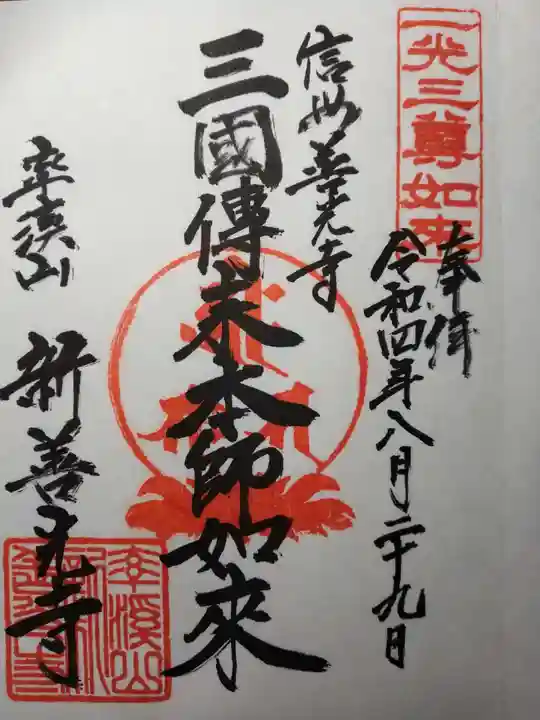 一光三尊如来
奉拝
令和四年八月二十九日
信州善光寺
三國傳来本師如來
新善光寺